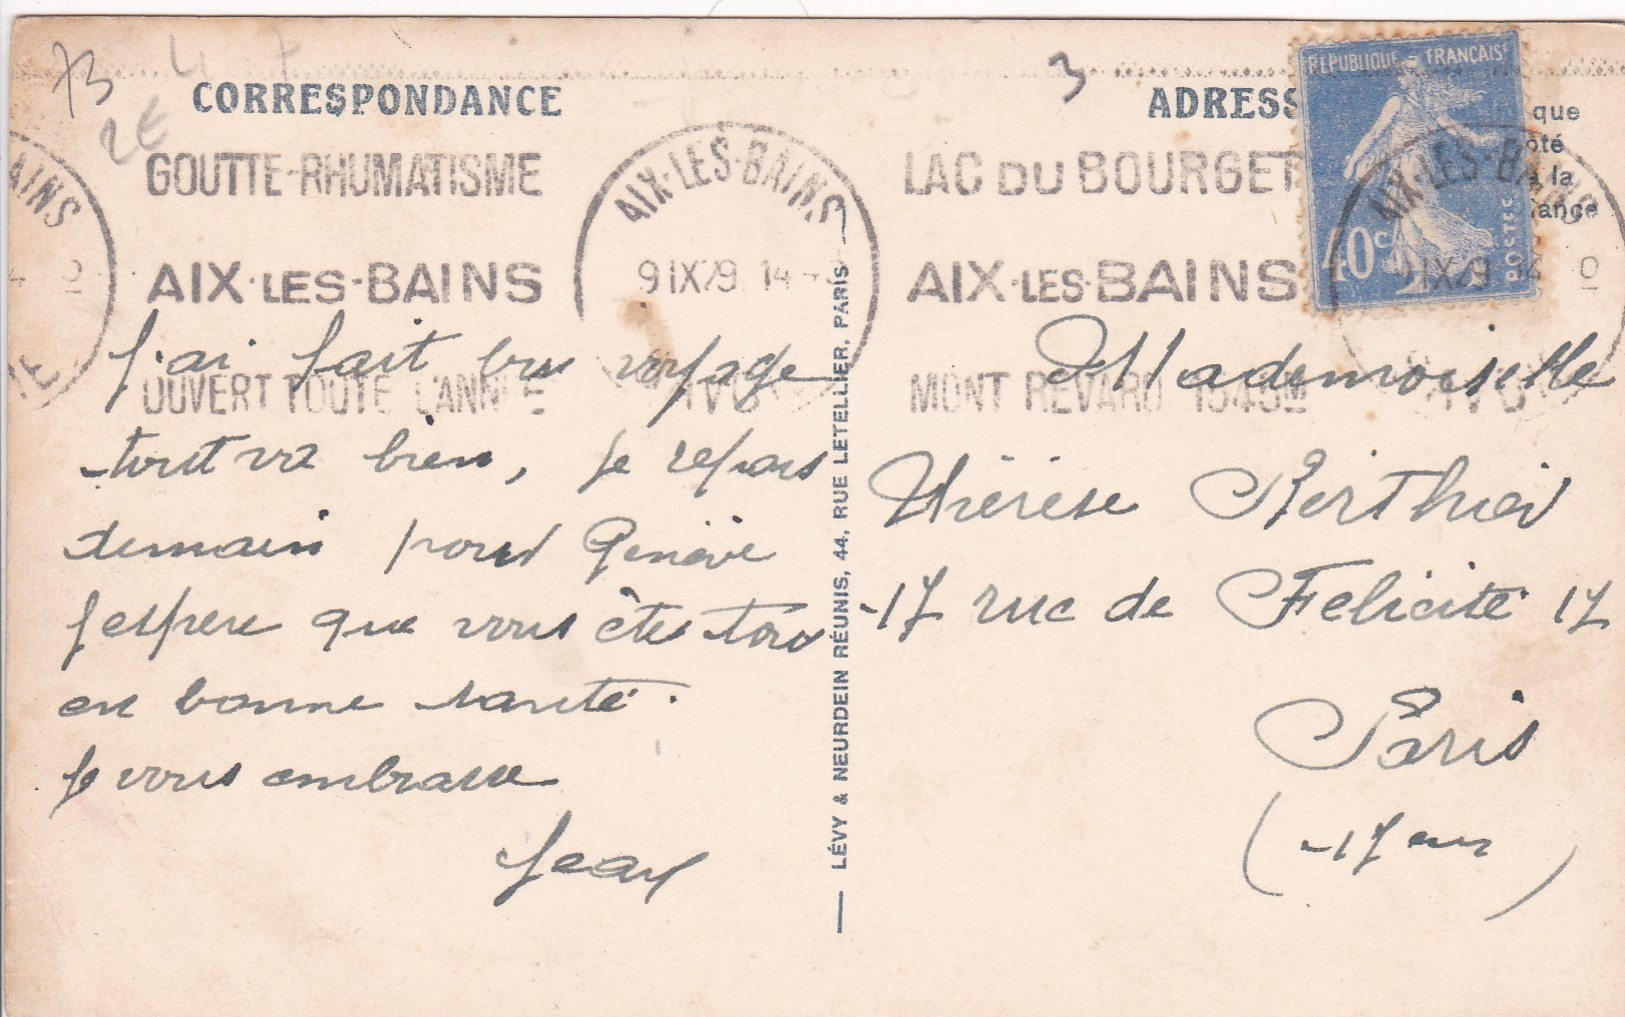 73
2€
3
CORRESPONDANCE
ADRESS
que
oté
la
dance
REPUBLIQUE FRANÇAISE
40c
POSTES
AINS
GOUTTE-RHUMATISME
AIX-LES-BAINS
OUVERT TOUTE L'ANNEE
AIX-LES-BAINS
9 IX 29. 14
LAC DU BOURGET
AIX-LES-BAINS
MONT REVARD 1545M
AIX-LES-BAINS
9 IX 29 14
j'ai fait bon voyage
tout va bien, je repars
demain pour Genève
j'espere que vous êtes tous
en bonne santé.
je vous embrasse
Jean
LÉVY & NEURDEIN RÉUNIS, 44, RUE LETELLIER, PARIS
Mademoiselle
Thérèse Berthier
17 rue de Felicité 17
Paris
(17 em)